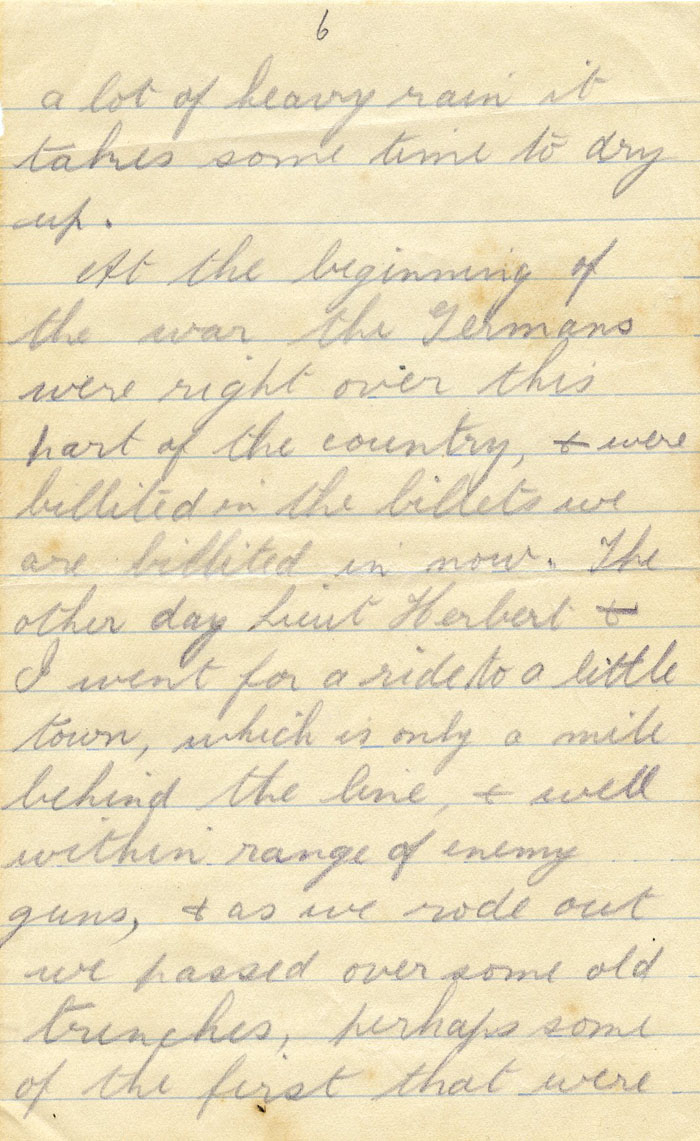 6
a lot of heavy rain it
takes some time to dry
up.
At the beginning of
the war the Germans
were right over this
part of the country, & were
billited in the billets we
are billited in now. The
other day Lieut Herbert &
I went for a ride to a little
town, which is only a mile
behind the line, & well
within range of enemy
guns, & as we rode out
we passed over some old
trenches, perhaps some
of the first that were